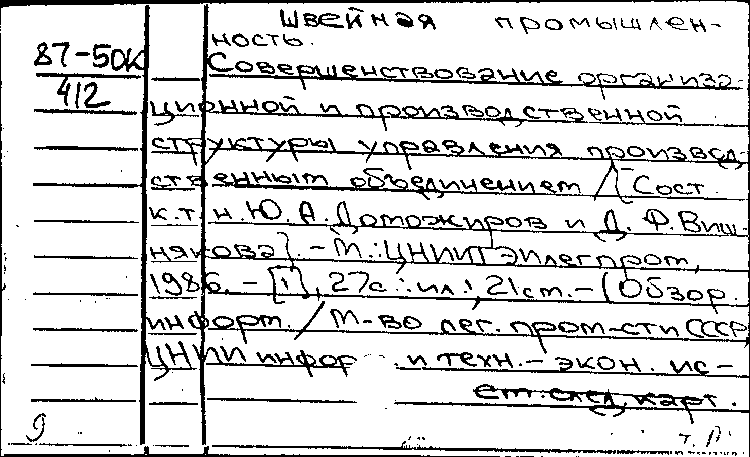 Швейная промышлен-
ность.
87-50К
Совершенствование организа-
412
ционной и производственной
структуры управления производ-
ственным объединением / [Сост.
к.т.н. Ю.А. Доможиров и Д.Ф. Виш-
някова]. - М.: ЦНИИТЭИлегпром,
1986. - [1], 27с.: ил.; 21см. - (Обзор.
информ. / М-во лег. пром-сти СССР,
ЦНИИ инфор и техн.-экон. ис-
см. след. карт.
9
т. п.